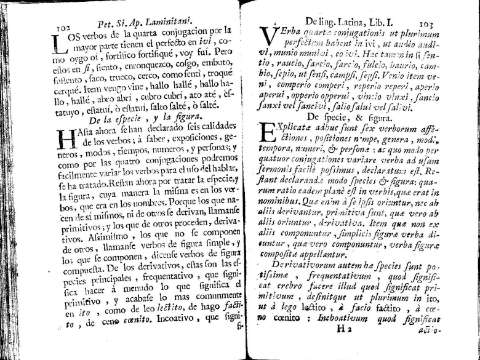 102
Pet. Si. Ap. Laminitani.
LOS verbos de la quarta conjugacion por la
mayor parte tienen el perfecto en ivi, co-
mo oygo oì, fortifico fortifiquè, voy fui. Pero
ellos en si, siento, enronquezco, cosgo, embuto,
sustento, saco, trueco, cerco, como sentì, troquè
cerquè. Item vengo vine, hallo hallè, hallo ha-
llo, hallè, abro abrì, cubro cubrì, ato atè, es-
tatuyo, estatuì, ò estatuì, salto saltè, ò saltè.
De la especie, y la figura.
HAsta ahora se han declarado seis calidades
de los verbos; à saber, exposiciones, ge-
neros, modos, tiempos, numeros, y persona; y
como por las quatro conjugaciones podremos
facilmente variar los verbos para el uso del hablar,
se ha tratado. Restan ahora por tratar la especie, y
la figura, cuya manera la misma es en los ver-
bos, que era en los nombres. Porque los que na-
cen de sì mismos, ni de otros se derivan, llamanse
primitivos; y los que de otros proceden, deriva-
tivos. Assimismo, los que no se componen
de otros, llamanse verbos de figura simple, y
los que se componen, dicense verbos de figura
compuesta. De los derivativos, estas son las es-
pecies principales, frequentativo, que signi-
fica hacer à menudo lo que significa el
primitivo, y acabase lo mas comunmente
en ito, como de leo lectito, de hago factit-
to, de ceno cœnito. Incoativo, que signi-
fi-
De ling. Latina, Lib. I.
103
VErba quartæ conjugationis ut plurimum
perfectum habent in ivi, ut audio audi-
vi, munio munivi, eo ivi. Hæc tamen in si sen-
tio, raucio, sarcio, farcio, fulcio, haurio, sam-
bio, sepio, ut sensi, campsi, sepsi. Venio item ve-
ni, comperio comperi, reperio reperi, aperio
aperui, operio operui, vincio vinxi, sancio
sanxi vel sancivi, salio salui vel salivi.
De specie, & figura.
EXplicatæ adhuc sunt sex verborum affe-
ctiones, positiones nempe, genera, modi,
tempora, numeri, & personæ: ac quo modo per
quatuor conjugationes variare verba ad usum
sermonis facilè possimus, declaratum est. Re-
stant declaranda modo species & figura: qua-
rum ratio eadem planè est in verbis, quæ erat in
nominibus. Quæ enim à se ipsis oriuntur, nec ab
aliis derivantur, primitiva sunt, quæ verò ab
aliis oriuntur, derivativa. Item quæ non ex
aliis componuntur, simplicis figuræ verba di-
cuntur, quæ verò componuntur, verba figuræ
compositæ appellantur.
Derivativorum autem hæ species sunt po-
tissimæ, frequentativum, quod signifi-
cat crebro facere illud quod significat pri-
mitivum, definitque ut plurimum in ito,
ut à lego lectito, à facio factito, à cœ-
no cœnito: Inchoativum quod significat
H 2
actio-